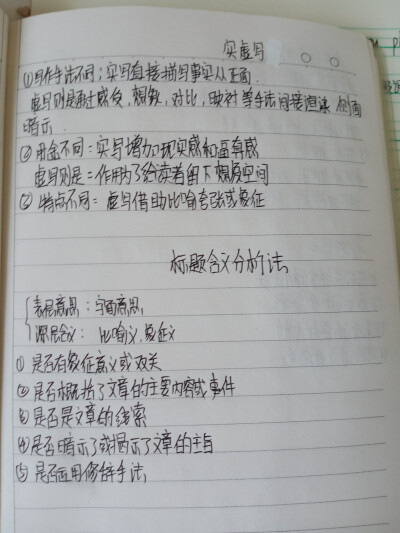 实虚写
①写作手法不同：实写直接描写事实从正面
虚写则是通过感受，想象，对比，映衬等手法间接渲染 侧面
暗示
②用途不同：实写增加现实感和逼真感
虚写则是：作用为了给读者留下想象空间
③特点不同：虚写借助比喻夸张或象征
标题含义分析法
表层意思：字面意思
深层含义：比喻义，象征义
①是否有象征意义或双关
②是否概括了文章的主要内容或事件
③是否是文章的线索
④是否暗示了或揭示了文章的主旨
⑤是否运用修辞手法